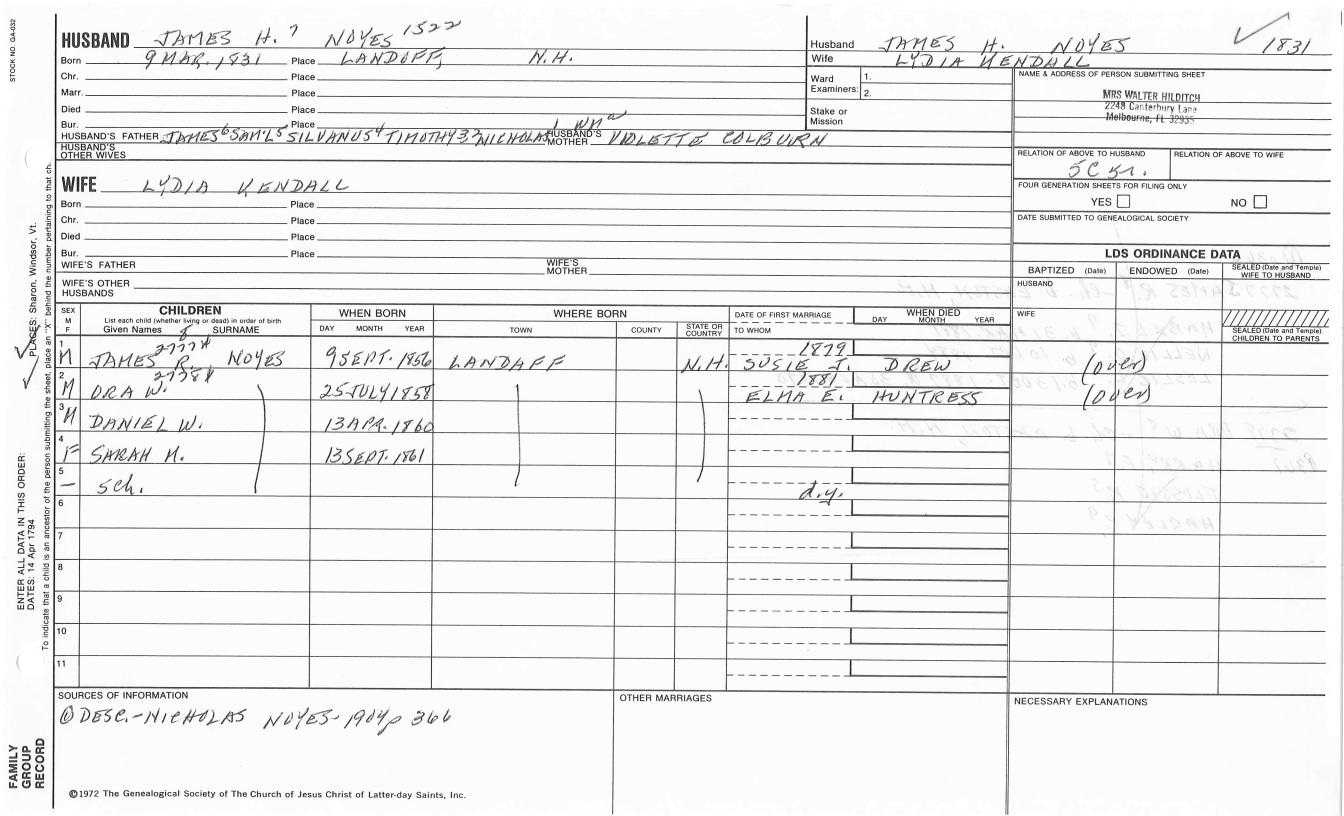 STOCK NO. GA-032
HUSBAND JAMES H.7 NOYES 1522
Born 9 MAR. 1831 Place LANDOFF, N.H.
Chr. Place
Marr. Place
Died Place
Bur. Place
HUSBAND'S FATHER JAMES6 SAM'L5 SILVANUS4 TIMOTHY3 2 NICHOLAS1 WMa HUSBAND'S MOTHER VIOLETTE COLBURN
HUSBAND'S OTHER WIVES
Husband JAMES H. NOYES 1831
Wife LYDIA KENDALL
Ward Examiners: 1.
2.
Stake or Mission
NAME & ADDRESS OF PERSON SUBMITTING SHEET
MRS WALTER HILDITCH
2248 Canterbury Lane
Melbourne, FL 32935
RELATION OF ABOVE TO HUSBAND RELATION OF ABOVE TO WIFE
5C 5r.
FOUR GENERATION SHEETS FOR FILING ONLY
YES NO
DATE SUBMITTED TO GENEALOGICAL SOCIETY
WIFE LYDIA KENDALL
Born Place
Chr. Place
Died Place
Bur. Place
WIFE'S FATHER WIFE'S MOTHER
WIFE'S OTHER HUSBANDS
LDS ORDINANCE DATA
BAPTIZED (Date) ENDOWED (Date) SEALED (Date and Temple) WIFE TO HUSBAND
HUSBAND
WIFE
SEALED (Date and Temple) CHILDREN TO PARENTS
SEX M F
CHILDREN
List each child (whether living or dead) in order of birth
Given Names 8 SURNAME
WHEN BORN
DAY MONTH YEAR
WHERE BORN
TOWN COUNTY STATE OR COUNTRY
DATE OF FIRST MARRIAGE
TO WHOM
WHEN DIED
DAY MONTH YEAR
1 M JAMES R. 2777 NOYES 9 SEPT. 1856 LANDAFF N.H. 1879 SUSIE J. DREW (over)
2 M ORA W. 2778 25 JULY 1858 1881 ELMA E. HUNTRESS (over)
3 M DANIEL W. 13 APR. 1860
4 F SARAH M. 13 SEPT. 1861
5 — sch. d.y.
6
7
8
9
10
11
SOURCES OF INFORMATION
① DESC.-NICHOLAS NOYES-1904 p 366
OTHER MARRIAGES
NECESSARY EXPLANATIONS
©1972 The Genealogical Society of The Church of Jesus Christ of Latter-day Saints, Inc.
FAMILY GROUP RECORD
ENTER ALL DATA IN THIS ORDER:
DATES: 14 Apr 1794
PLACES: Sharon, Windsor, Vt.
To indicate that a child is an ancestor of the person submitting the sheet, place an "X" behind the number pertaining to that ch.